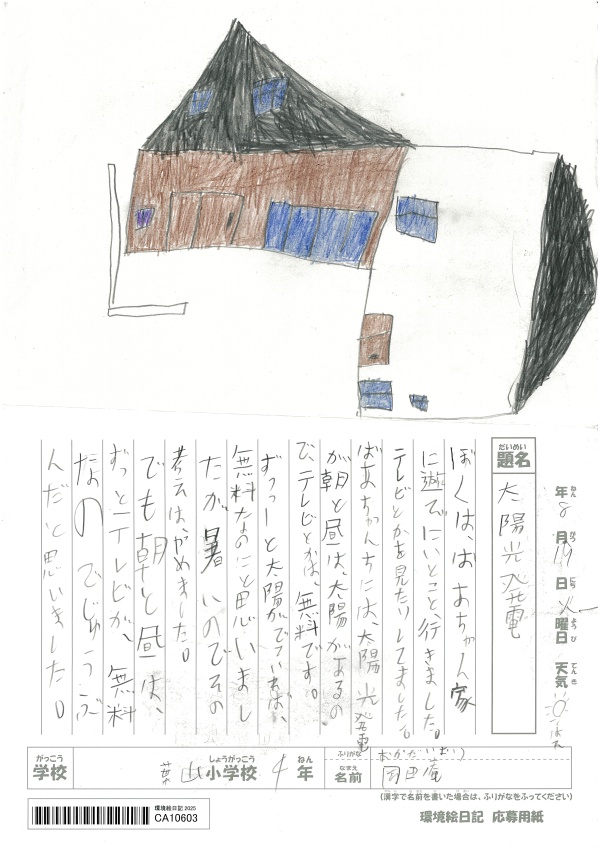 だいめい
題名
太陽光発電
年 8 月 19 日 火 曜日 天気 はれ
ねん がつ にち ようび てんき
ぼくは、ばあちゃん家
に遊でにいとこと、行きました。
テレビとかを見たりしてました。
ばあちゃんちには、太陽光発電
が朝と昼は、太陽があるの
で、テレビとかは、無料です。
ずっーと太陽がでていれば、
無料なのにと思いまし
たが、暑いのでその
考えは、やめました。
でも朝と昼は、
ずっとテレビが、無料
なのでじゅうぶ
んだと思いました。
がっこう しょうがっこう ねん
学校 葉山小学校 4年
ふりがな
なまえ
名前 岡田庵
(漢字で名前を書いた場合は、ふりがなをふってください)
環境絵日記 2025
CA10603
環境絵日記 応募用紙